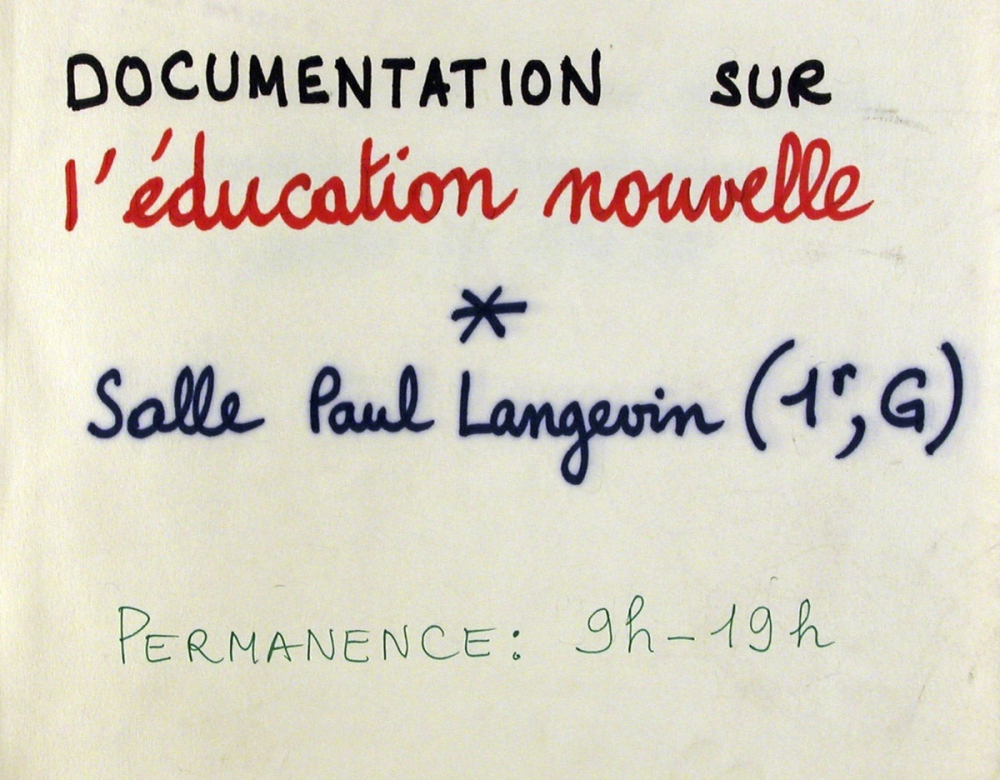 DOCUMENTATION SUR
l'éducation nouvelle
*
Salle Paul Langevin (1r, G)
PERMANENCE: 9h-19h